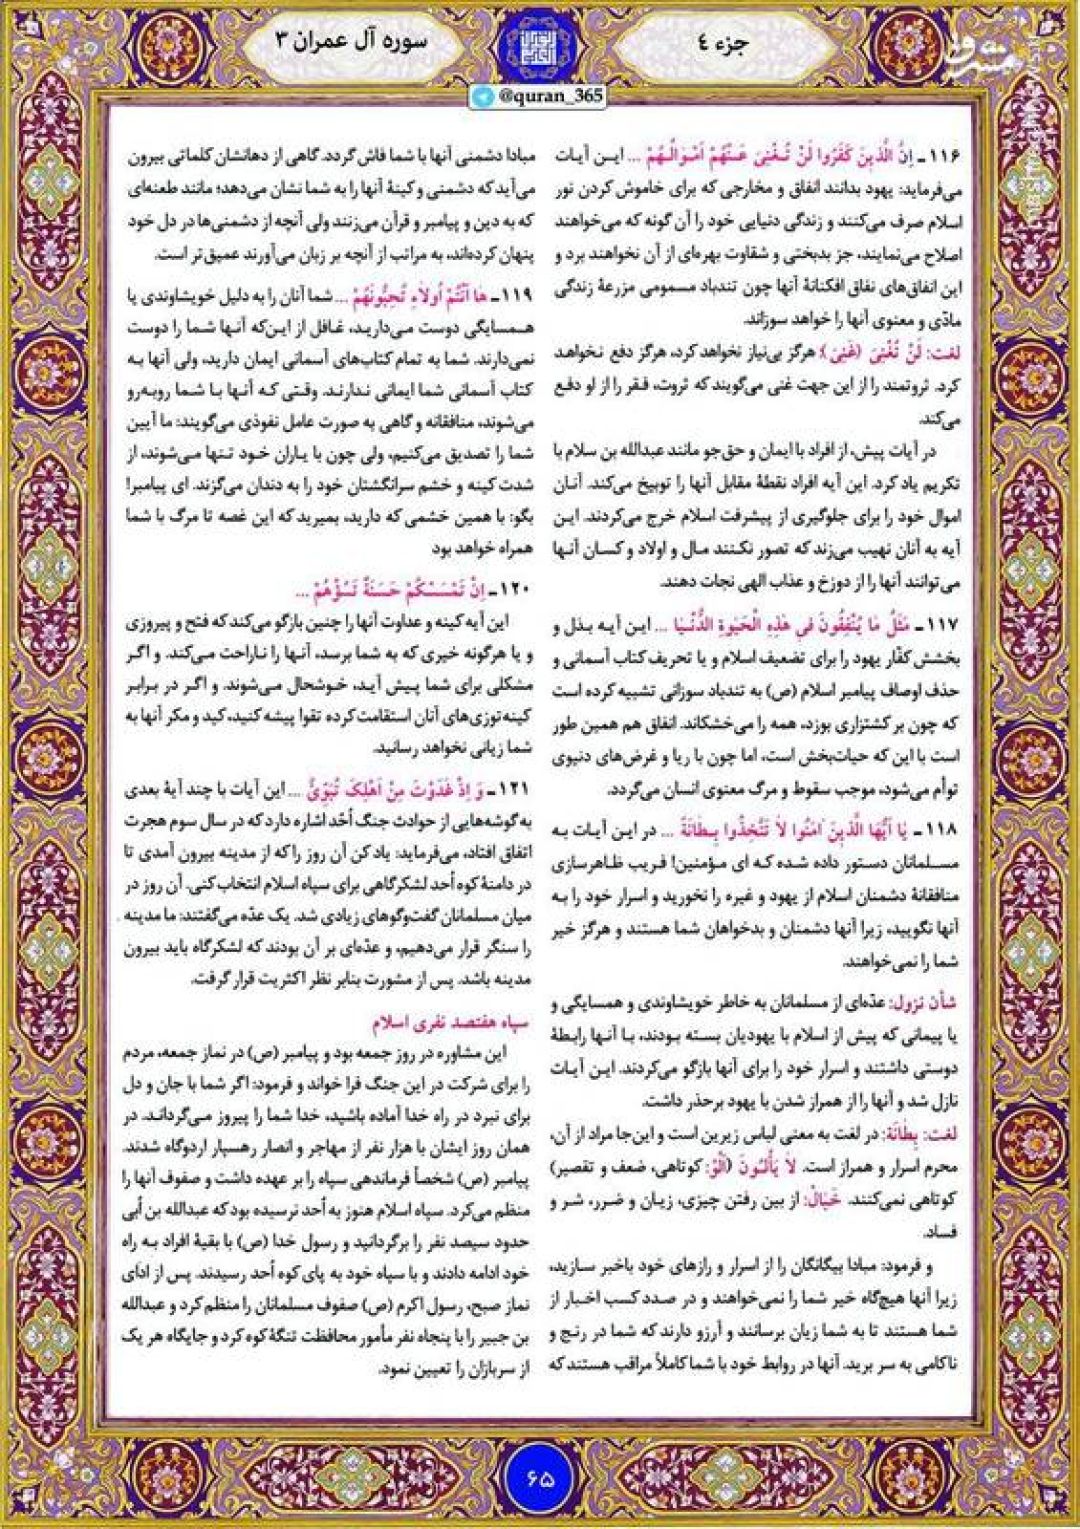 جزء ۴
سوره آل عمران ۳
@quran_365
۱۱۶ـ اِنَّ الَّذینَ کَفَرُوا لَنْ تُغْنِیَ عَنْهُمْ اَمْوٰالُهُمْ ... ایـن آیـات
می‌فرماید: یهود بدانند انفاق و مخارجی که برای خاموش کردن نور
اسلام صرف می‌کنند و زندگی دنیایی خود را آن گونه که می‌خواهند
اصلاح می‌نمایند، جز بدبختی و شقاوت بهره‌ای از آن نخواهند برد و
این انفاق‌های نفاق افکنانهٔ آنها چون تندباد مسمومی مزرعهٔ زندگی
مادّی و معنوی آنها را خواهد سوزاند.
لغت: لَنْ تُغْنِیَ (غَنِیَ): هرگز بی‌نیاز نخواهد کرد، هرگز دفع نـخواهـد
کرد. ثروتمند را از این جهت غنی می‌گویند که ثروت، فقر را از او دفع
می‌کند.
در آیات پیش، از افراد با ایمان و حق‌جو مانند عبدالله بن سلام با
تکریم یاد کرد. این آیه افراد نقطهٔ مقابل آنها را توبیخ می‌کند. آنـان
اموال خود را برای جلوگیری از پیشرفت اسلام خرج می‌کردند. ایـن
آیه به آنان نهیب می‌زند که تصور نکـنند مـال و اولاد و کسـان آنـها
می‌توانند آنها را از دوزخ و عذاب الهی نجات دهند.
۱۱۷ـ مَثَلُ مٰا یُنْفِقُونَ فی هٰذِهِ الْحَیٰوةِ الدُّنْیٰا ... ایـن آیـه بـذل و
بخشش کفّار یهود را برای تضعیف اسلام و یا تحریف کتاب آسمانی و
حذف اوصاف پیامبر اسلام (ص) به تندباد سوزانی تشبیه کرده است
که چون بر کشتزاری بوزد، همه را می‌خشکاند. انفاق هم همین طور
است با این که حیات‌بخش است، اما چون با ریا و غرض‌های دنیوی
توأم می‌شود، موجب سقوط و مرگ معنوی انسان می‌گردد.
۱۱۸ـ یٰا اَیُّهَا الَّذینَ اٰمَنُوا لاٰ تَتَّخِذُوا بِـطٰانَةً ... در ایـن آیـات بـه
مسـلمانان دستور داده شـده کـه ای مـؤمنین! فـریب ظـاهرسازی
منافقانهٔ دشمنان اسلام از یهود و غیره را نخورید و اسرار خـود را بـه
آنها نگویید، زیرا آنها دشمنان و بدخواهان شما هستند و هرگز خیر
شما را نمی‌خواهند.
شأن نزول: عدّه‌ای از مسلمانان به خاطر خویشاوندی و همسایگی و
یا پیمانی که پیش از اسلام با یهودیان بسته بـودند، بـا آنـها رابـطهٔ
دوستی داشتند و اسرار خود را برای آنها بازگو می‌کردند. ایـن آیـات
نازل شد و آنها را از همراز شدن با یهود برحذر داشت.
لغت: بِطٰانَة: در لغت به معنی لباس زیرین است و این‌جا مراد از آن،
محرم اسرار و همراز است. لاٰ یَأْلُـونَ (اَلْوْ: کوتاهی، ضعف و تقصیر)
کوتاهی نمی‌کنند. خَبٰال: از بین رفتن چیزی، زیـان و ضـرر، شـر و
فساد.
و فرمود: مبادا بیگانگان را از اسرار و رازهای خود باخبر سـازید،
زیرا آنها هیچ‌گاه خیر شما را نمی‌خواهند و در صدد کسب اخـبار از
شما هستند تا به شما زیان برسانند و آرزو دارند که شما در رنـج و
ناکامی به سر برید. آنها در روابط خود با شما کاملاً مراقب هستند که
مبادا دشمنی آنها با شما فاش گردد. گاهی از دهانشان کلماتی بیرون
می‌آید که دشمنی و کینهٔ آنها را به شما نشان می‌دهد؛ مانند طعنه‌ای
که به دین و پیامبر و قرآن می‌زنند ولی آنچه از دشمنی‌ها در دل خود
پنهان کرده‌اند، به مراتب از آنچه بر زبان می‌آورند عمیق‌تر است.
۱۱۹ـ هٰا اَنْتُمْ اُولاٰءِ تُحِبُّونَهُمْ ... شما آنان را به دلیل خویشاوندی یا
هـمسایگی دوست مـی‌داریـد، غـافل از ایـن‌که آنـها شـما را دوست
نمی‌دارند. شما به تمام کتاب‌های آسمانی ایمان دارید، ولی آنها بـه
کتاب آسمانی شما ایمانی ندارنـد. وقـتی کـه آنـها بـا شـما روبـه‌رو
می‌شوند، منافقانه و گاهی به صورت عامل نفوذی می‌گویند: ما آیین
شما را تصدیق می‌کنیم، ولی چون با یاران خـود تـنها مـی‌شوند، از
شدت کینه و خشم سرانگشتان خود را به دندان می‌گزند. ای پیامبر!
بگو: با همین خشمی که دارید، بمیرید که این غصه تا مرگ با شما
همراه خواهد بود
۱۲۰ـ اِنْ تَمْسَسْکُمْ حَسَنَةٌ تَسُؤْهُمْ ...
این آیه کینه و عداوت آنها را چنین بازگو می‌کند که فتح و پیروزی
و یا هرگونه خیری که به شما برسد، آنـها را ناراحت مـی‌کند. و اگـر
مشکلی برای شما پـیش آیـد، خـوشحال مـی‌شوند. و اگـر در بـرابر
کینه‌توزی‌های آنان استقامت کرده تقوا پیشه کنید، کید و مکر آنها به
شما زیانی نخواهد رسانید.
۱۲۱ـ وَ اِذْ غَدَوْتَ مِنْ اَهْلِکَ تُبَوِّئُ ... این آیات با چند آیهٔ بعدی
به گوشه‌هایی از حوادث جنگ اُحُد اشاره دارد که در سال سوم هجرت
اتفاق افتاد، می‌فرماید: یاد کن آن روز را که از مدینه بیرون آمدی تا
در دامنهٔ کوه اُحد لشکرگاهی برای سپاه اسلام انتخاب کنی. آن روز در
میان مسلمانان گفت‌وگوهای زیادی شد. یک عدّه می‌گفتند: ما مدینه
را سنگر قرار می‌دهیم، و عدّه‌ای بر آن بودند که لشکرگاه باید بیرون
مدینه باشد. پس از مشورت بنابر نظر اکثریت قرار گرفت.
سپاه هفتصد نفری اسلام
این مشاوره در روز جمعه بود و پیامبر (ص) در نماز جمعه، مردم
را برای شرکت در این جنگ فرا خواند و فرمود: اگر شما با جان و دل
برای نبرد در راه خدا آماده باشید، خدا شـما را پـیروز مـی‌گردانـد. در
همان روز ایشان با هزار نفر از مهاجر و انصار رهسپار اردوگاه شدند.
پیامبر (ص) شخصاً فرماندهی سپاه را بر عهده داشت و صفوف آنها را
منظم می‌کرد. سپاه اسلام هنوز به اُحد نرسیده بود که عبدالله بن اُبی
حدود سیصد نفر را برگردانید و رسول خدا (ص) با بقیهٔ افراد بـه راه
خود ادامه دادند و با سپاه خود به پای کوه اُحد رسیدند. پس از ادای
نماز صبح، رسول اکرم (ص) صفوف مسلمانان را منظم کرد و عبدالله
بن جبیر را با پنجاه نفر مأمور محافظت تنگهٔ کوه کرد و جایگاه هر یک
از سربازان را تعیین نمود.
۶۵